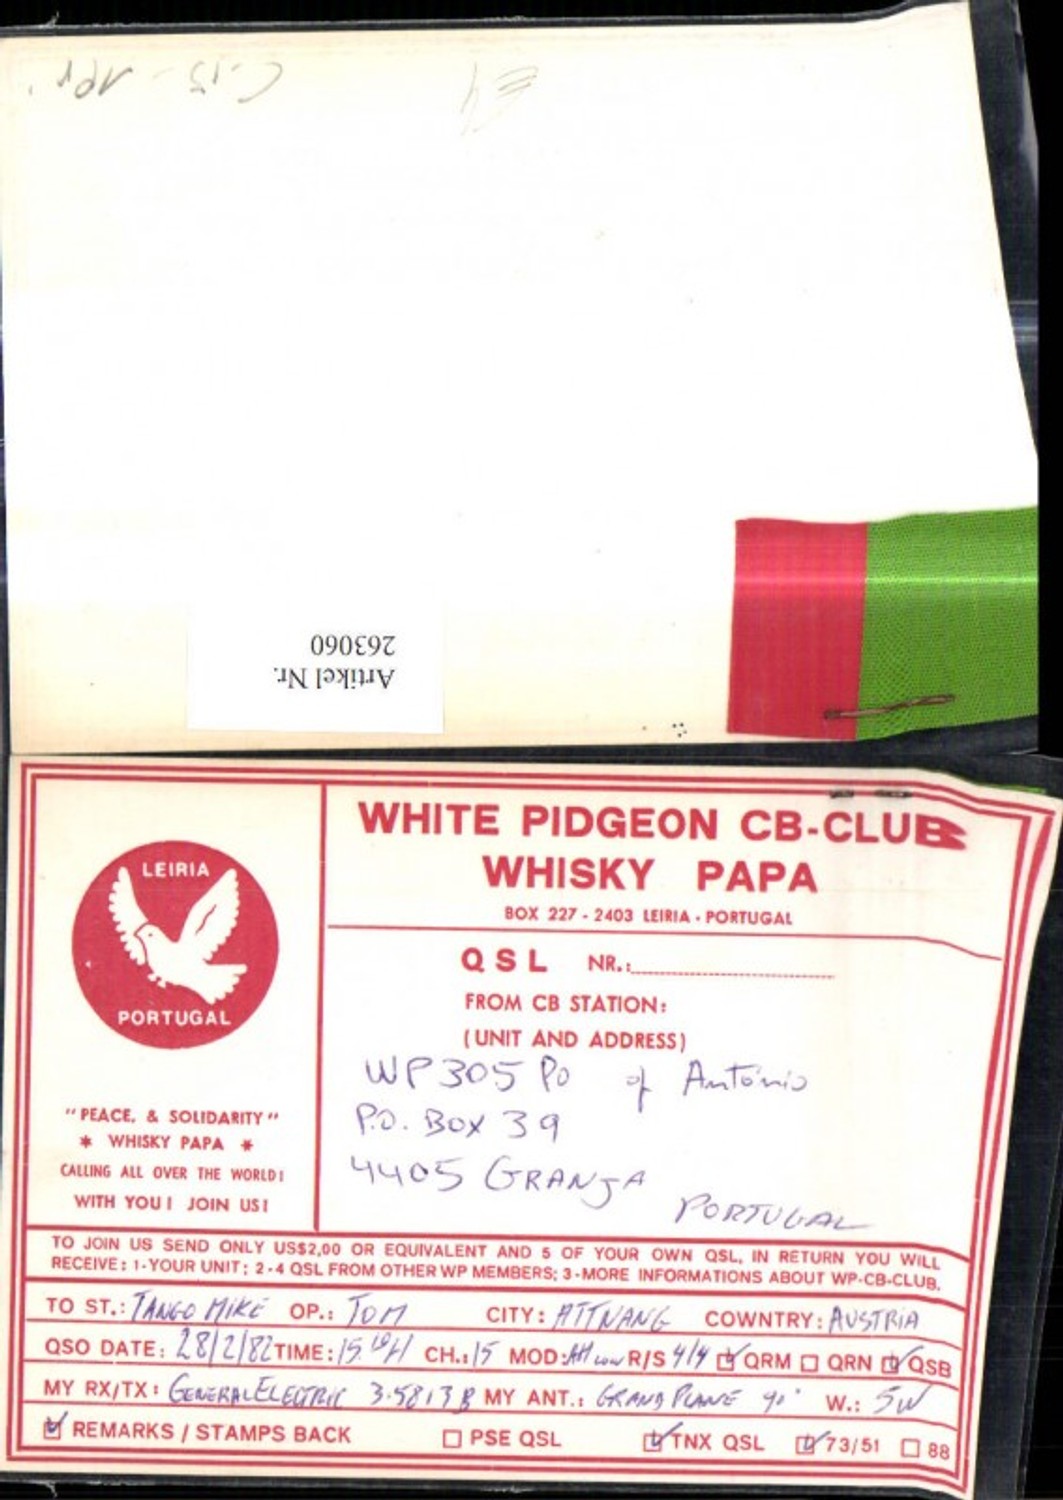 E4
Artikel Nr.
263060
LEIRIA
PORTUGAL
"PEACE, & SOLIDARITY"
* WHISKY PAPA *
CALLING ALL OVER THE WORLD!
WITH YOU! JOIN US!
WHITE PIDGEON CB-CLUB
WHISKY PAPA
BOX 227 - 2403 LEIRIA - PORTUGAL
QSL NR.:
FROM CB STATION:
(UNIT AND ADDRESS)
WP305 Po of António
P.O. Box 39
4405 GRANJA
PORTUGAL
TO JOIN US SEND ONLY US$2,00 OR EQUIVALENT AND 5 OF YOUR OWN QSL, IN RETURN YOU WILL
RECEIVE: 1-YOUR UNIT; 2-4 QSL FROM OTHER WP MEMBERS; 3-MORE INFORMATIONS ABOUT WP-CB-CLUB.
TO ST.: TANGO MIKE OP.: TOM CITY: ATTNANG COWNTRY: AUSTRIA
QSO DATE: 28/2/82 TIME: CH.: 15 MOD: R/S 4/4 QRM QRN QSB
MY RX/TX: GENERAL ELECTRIC 3-5813B MY ANT.: GRAND PLANE W.: 5W
REMARKS / STAMPS BACK PSE QSL TNX QSL 73/51 88